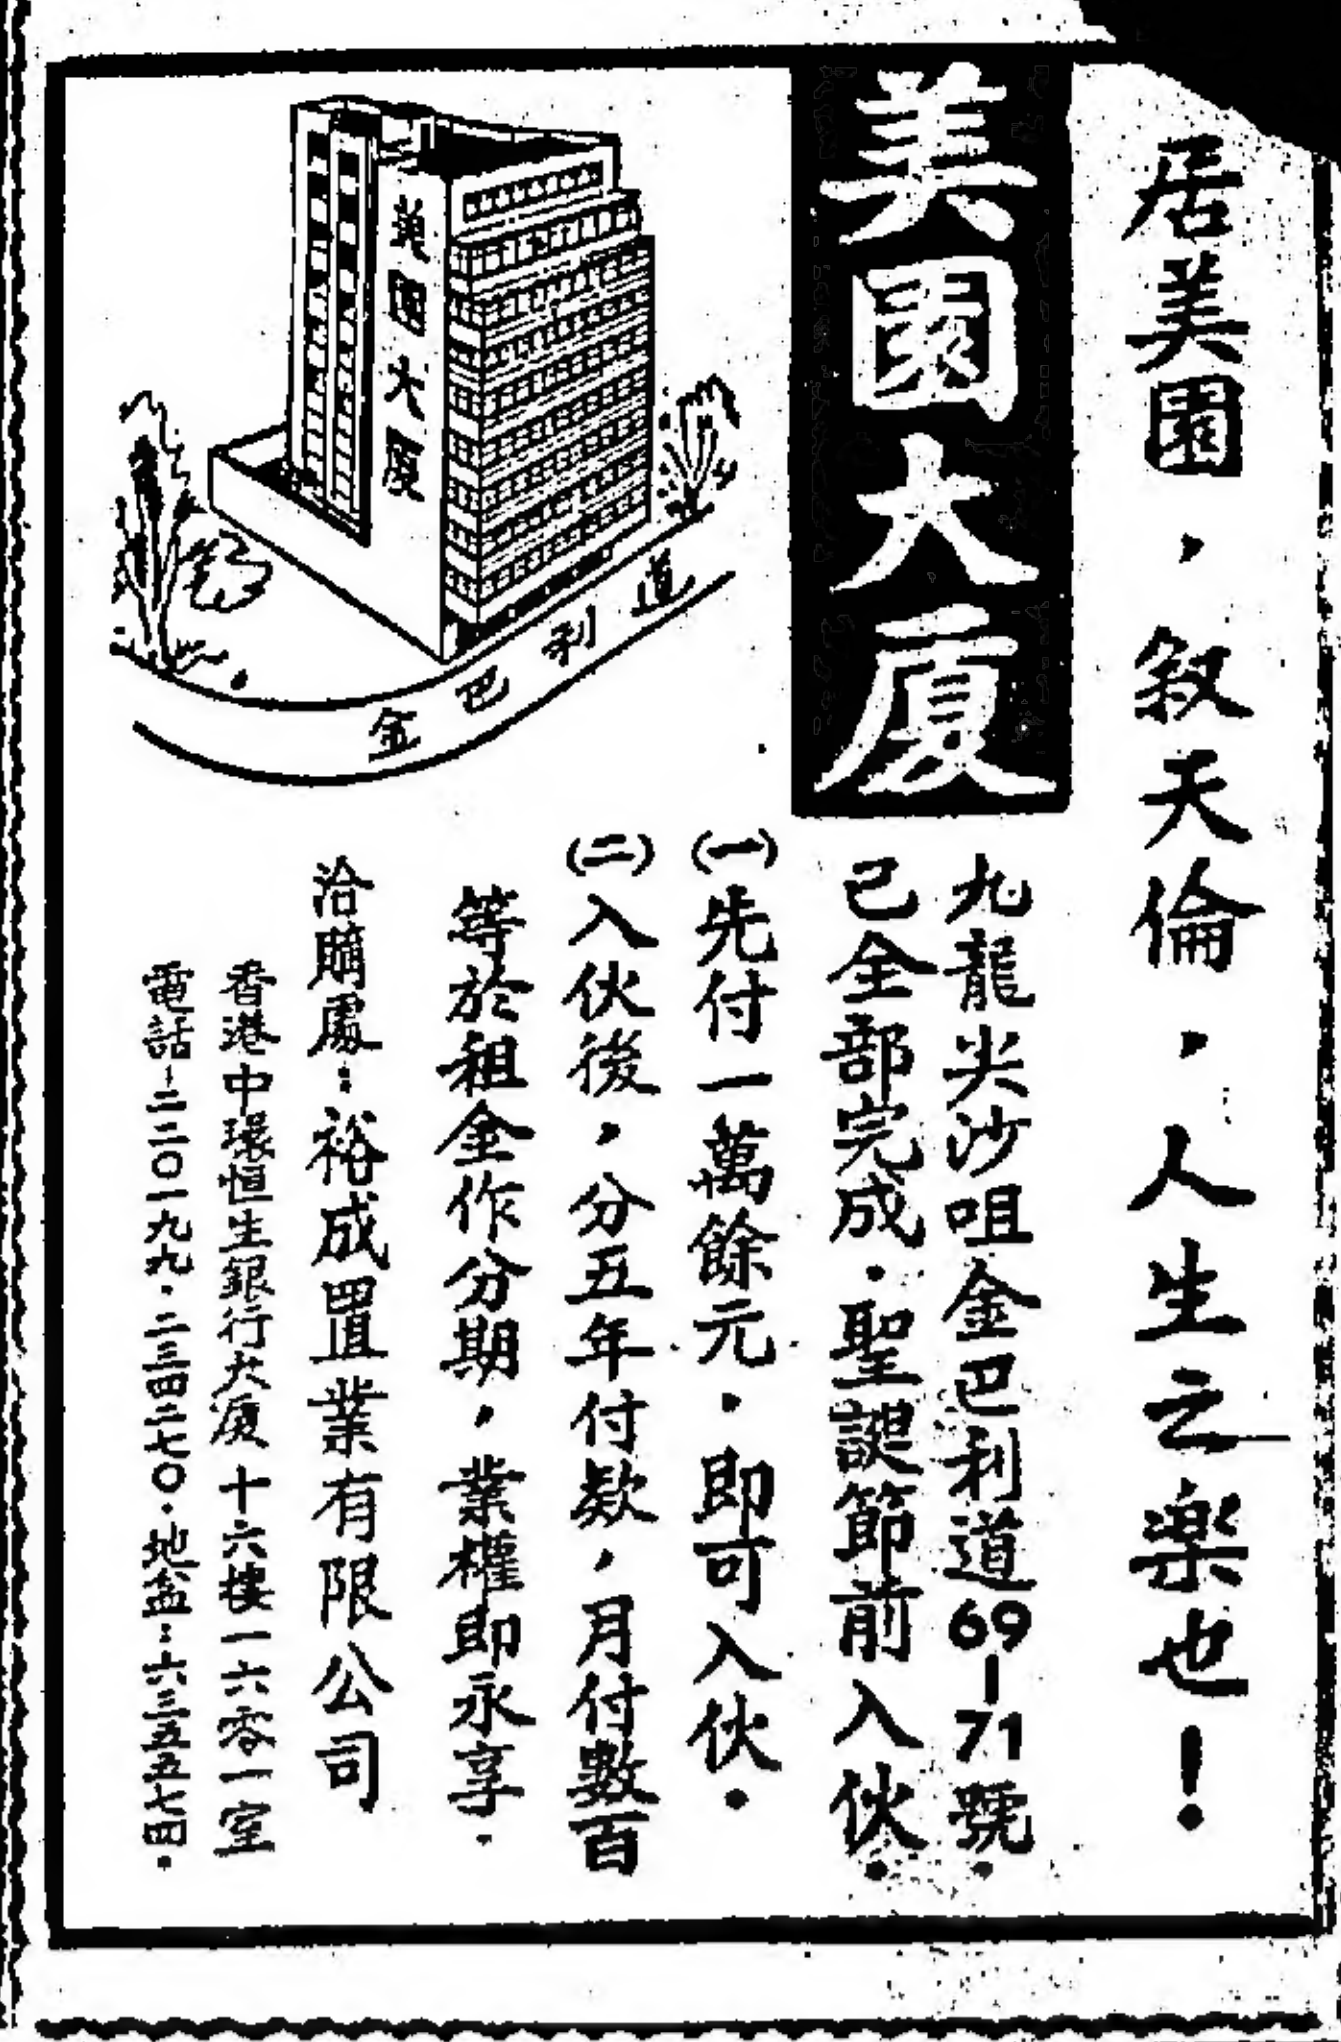 居美園，叙天倫，人生之楽也！
美園大厦
九龍尖沙咀金巴利道69-71號．
已全部完成．聖誕節前入伙．
(一)先付一萬餘元．即可入伙．
(二)入伙後，分五年付欵，月付數百
等於租金作分期，業權即永享．
洽購處：裕成置業有限公司
香港中環恒生銀行大厦十六樓一六零一室
電話：二二〇一九九．二三四二七〇．地盆：六三五五七四．
美園大厦
金巴利道